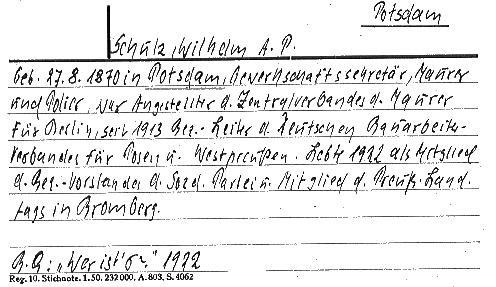 Potsdam
Schulz, Wilhelm A. P.
Geb. 27.8.1870 in Potsdam, Gewerkschaftssekretär, Maurer
und Polier, war Angestellter d. Zentralverbandes d. Maurer
für Berlin, seit 1913 Bez.-Leiter d. Deutschen Bauarbeiter-
verbandes für Posen u. Westpreußen. Lebte 1922 als Mitglied
d. Bez.-Vorstandes d. Sozd. Partei u. Mitglied d. Preuß. Land-
tags in Bromberg.
B.Q: „Wer ist's?" 1922
Reg. 10. Stichnote. 1. 50. 232 000. A. 803. S. 4062